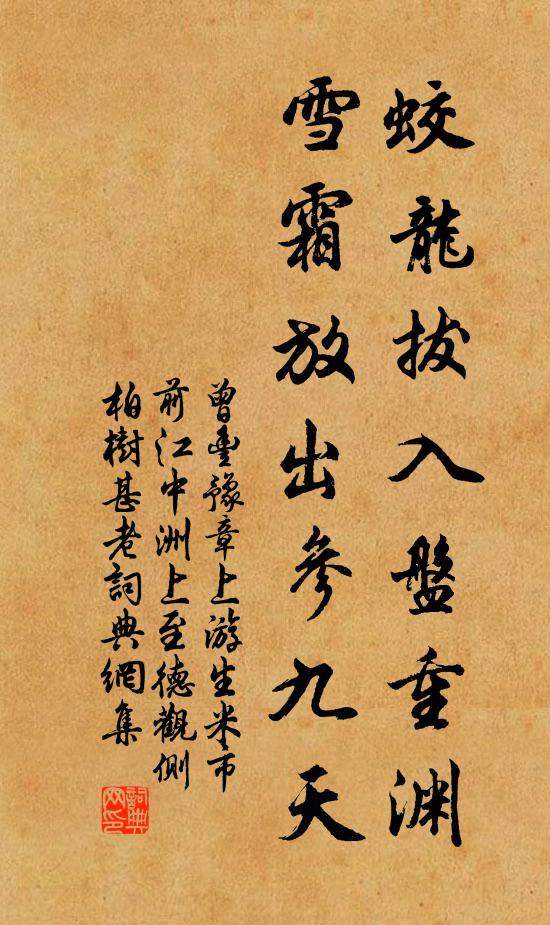 蛟龍拔入盤重渊
雪霜放出參九天
曾豐豫章上游生米市
前江中洲上至德觀側
柏樹甚老詞典網集
詞典
网印